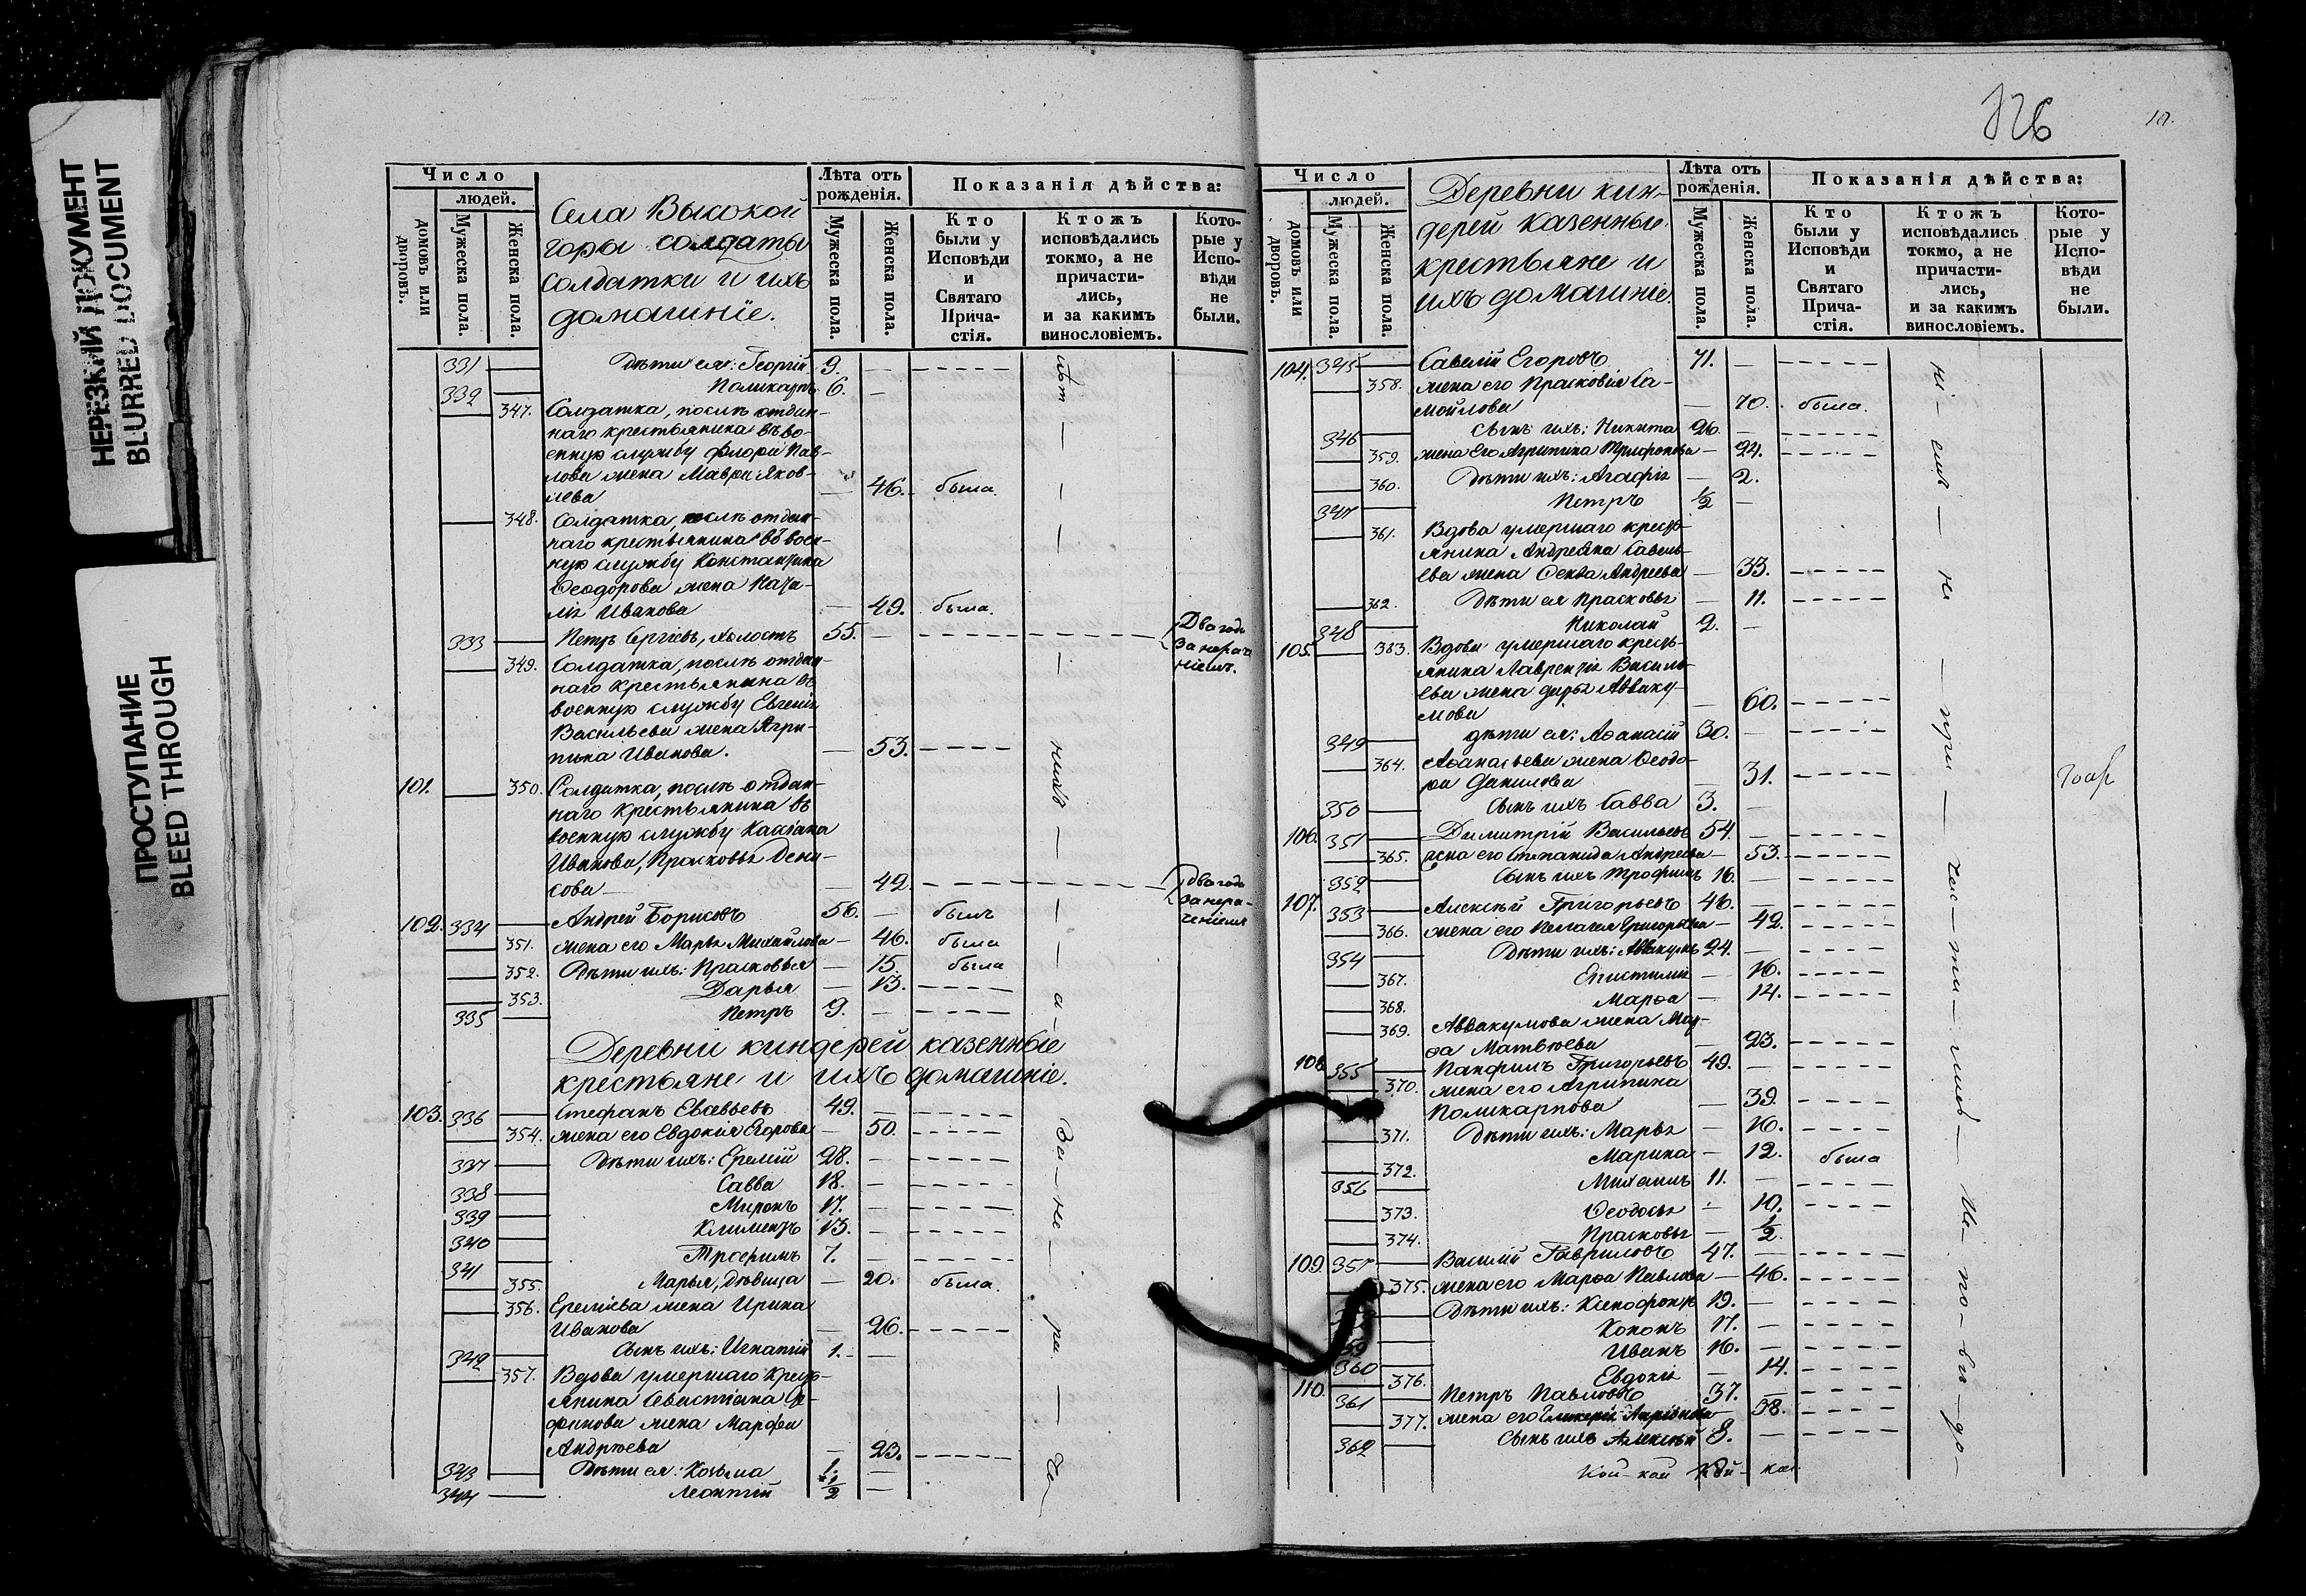 НЕРЕЗКИЙ ДОКУМЕНТ
BLURRED DOCUMENT
ПРОСТУПАНИЕ
BLEED THROUGH
Число
людей.
домовъ или дворовъ.
Мужеска пола.
Женска пола.
Села Высокой
горы солдаты
солдатки и ихъ
домашніе.
Лѣта отъ рожденія.
Мужеска пола.
Женска пола.
Показанія дѣйства:
Кто были у Исповѣди и Святаго Прича-стія.
Ктожъ исповѣдались токмо, а не причасти-лись, и за какимъ винословіемъ.
Кото-рые у Испо-вѣди не были.
331 Дѣти ея: Георгій 9.
332 Поликарпъ 6.
347. Солдатка, послѣ отдан-
наго крестьянина въ во-
енную службу Флора Пав-
лова жена Мавра Яков-
лева 46. была.
348. Солдатка, послѣ отдан-
наго крестьянина въ воен-
ную службу Константина
Ѳеодорова жена Ната-
лія Иванова 49. была.
333 Петръ Сергіевъ, холостъ 55. Два года
за нерач
ніемъ.
349. Солдатка, послѣ отдан-
наго крестьянина въ
военную службу Евгенія
Васильева жена Агри-
пина Иванова. 53.
101. 350. Солдатка, послѣ отдан-
наго крестьянина въ
военную службу Кассіана
Иванова, Прасковья Дени-
сова 42. Два года
за нера-
ченіемъ
102. 334 Андрей Борисовъ 56. былъ
351. жена его Марья Михайлова 46. была
352. Дѣти ихъ: Прасковья 15. была
353. Дарья 13.
335 Петръ 9.
Деревни Киндерей казенные
крестьяне и ихъ домашніе.
103. 336 Стефанъ Евсевьевъ 49.
354. жена его Евдокія Егорова 50.
337 Дѣти ихъ: Еремій 28.
338 Савва 18.
339 Миронъ 17.
340 Климентъ 13.
341 Трофимъ 7.
355. Марья, дѣвица 20. была.
356. Ереміева жена Ирина
Иванова 26.
342 Сынъ ихъ: Игнатій 1.
357. Вдова умершаго кресть-
янина Севастіана
жена Марфа
Андреева 23.
343 Дѣти ея: Козьма 1.
344 Леонтій 1/2
326
Число
людей.
домовъ или дворовъ.
Мужеска пола.
Женска пола.
Деревни Кин-
дерей казенные
крестьяне и
ихъ домашніе.
Лѣта отъ рожденія.
Мужеска пола.
Женска пола.
Показанія дѣйства:
Кто были у Исповѣди и Святаго Прича-стія.
Ктожъ исповѣдались токмо, а не причасти-лись, и за какимъ винословіемъ.
Кото-рые у Испо-вѣди не были.
104. 345 Савелій Егоровъ 71.
358. жена его Прасковія Са-
мойлова 70. была.
346 Сынъ ихъ: Никита 26.
359. жена его Агрипина Трифонова 24.
360. Дѣти ихъ: Агафія 2.
347 Петръ 1/2
361. Вдова умершаго кресть-
янина Андреяна Савель-
ева жена Ѳекла Андреева 33.
362. Дѣти ея Прасковья 11.
348 Николай 2.
105. 363. Вдова умершаго кресть-
янина Лаврентія Василь-
ева жена Дарья Авваку-
мова 60.
349 Дѣти ея: Аѳанасій 30.
364. Аѳанасьева жена Ѳеодо-
ра Данилова 31.
350 Сынъ ихъ Савва 3.
106. 351 Димитрій Васильевъ 54.
365. жена его Степанида Андреева 53.
352 Сынъ ихъ Трофимъ 16.
107. 353 Алексѣй Григорьевъ 46.
366. жена его Пелагея Григорьева 42.
354 Дѣти ихъ: Аввакумъ 24.
367. Епистимія 16.
368. Марѳа 14.
369. Аввакумова жена Мар-
ѳа Матвѣева 23.
108 355 Панфилъ Григорьевъ 49.
370. жена его Агрипина
Поликарпова 39.
371. Дѣти ихъ: Марья 16.
372. Марина 12. была
356 Михаилъ 11.
373. Ѳеодосья 10.
374. Прасковья 1/2.
109. 357 Василій Гавриловъ 47.
375. жена его Марѳа Павлова 46.
Дѣти ихъ: Ксенофонтъ 19.
Кононъ 17.
Иванъ 16.
360
376. Евдокія 14.
110. 361 Петръ Павловъ 37.
377. жена его Гликерія 38.
362 Сынъ ихъ Алексѣй 8.